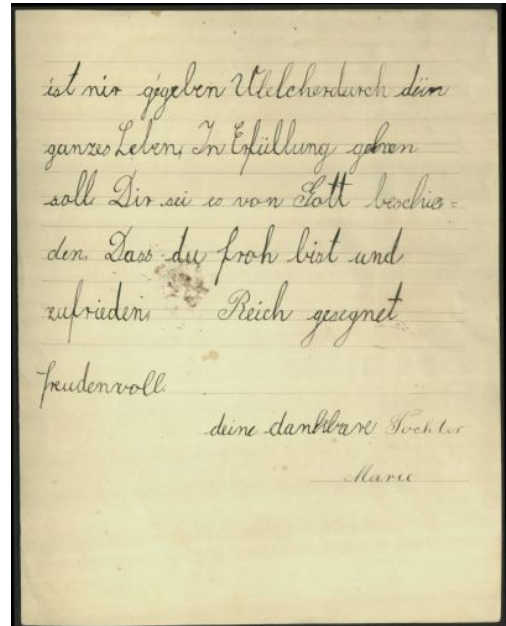 ist mir gegeben Welcherdurch dein
ganzes Leben, In Erfüllung gehen
soll Dir sei es von Gott beschie=
den. Dass du froh bist und
zufrieden, Reich gesegnet
freudenvoll.
deine dankbare Tochter
Marie